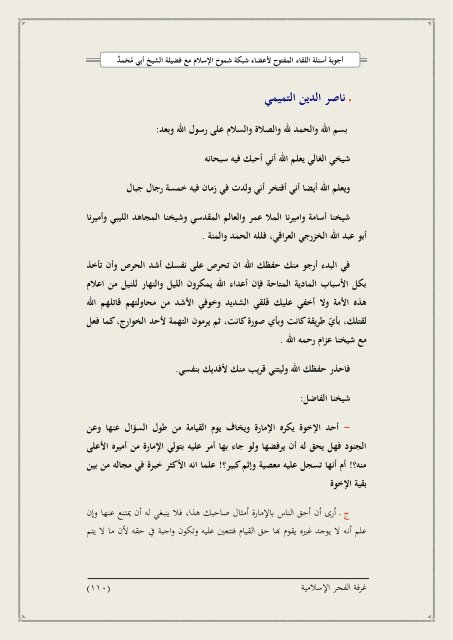 أجوبة أسئلة اللقاء المفتوح لأعضاء شبكة شموخ الإسلام مع فضيلة الشيخ أبي مُحَمدٌ
. ناصر الدين التميمي
بسم الله والحمد لله والصلاة والسلام على رسول الله وبعد:
شيخي الغالي يعلم الله أني أحبك فيه سبحانه
ويعلم الله أيضا أني أفتخر أني ولدت في زمان فيه خمسة رجال جبال
شيخنا أسامة واميرنا الملا عمر والعالم المقدسي وشيخنا المجاهد الليبي وأميرنا
أبو عبد الله الخزرجي العراقي، فلله الحمد والمنة .
في البدء أرجو منك حفظك الله ان تحرص على نفسك أشد الحرص وأن تأخذ
بكل الأسباب المادية المتاحة فإن أعداء الله يمكرون الليل والنهار للنيل من اعلام
هذه الأمة ولا أخفي عليك قلقي الشديد وخوفي الأشد من محاولتهم قاتلهم الله
لقتلك، بأيّ طريقة كانت وبأي صورة كانت، ثم يرمون التهمة لأحد الخوارج، كما فعل
مع شيخنا عزام رحمه الله .
فاحذر حفظك الله وليتني قريب منك لأفديك بنفسي.
شيخنا الفاضل:
– أحد الإخوة يكره الإمارة ويخاف يوم القيامة من طول السؤال عنها وعن
الجنود فهل يحق له أن يرفضها ولو جاء بها أمر عليه بتولي الإمارة من أميره الأعلى
منه؟! أم أنها تسجل عليه معصية وإثم كبير؟! علما انه الأكثر خبرة في مجاله من بين
بقية الإخوة
ج . أرى أن أحق الناس بالإمارة أمثال صاحبك هذا، فلا ينبغي له أن يمتنع عنها وإن
علم أنه لا يوجد غيره يقوم بها حق القيام فتتعين عليه وتكون واجبة في حقه لأن ما لا يتم
غرفة الفجر الإسلامية (١١٠)